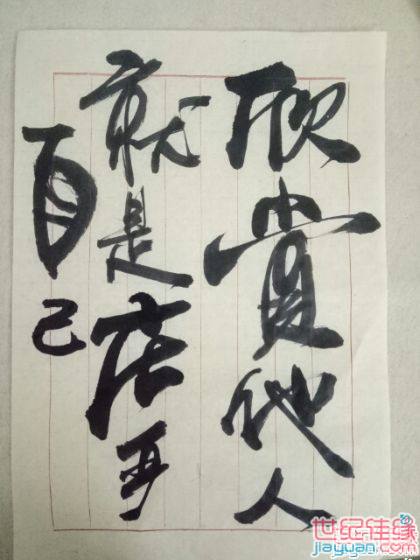 欣賞他人
就是庄严
自己
世纪佳缘
jiayuan.com